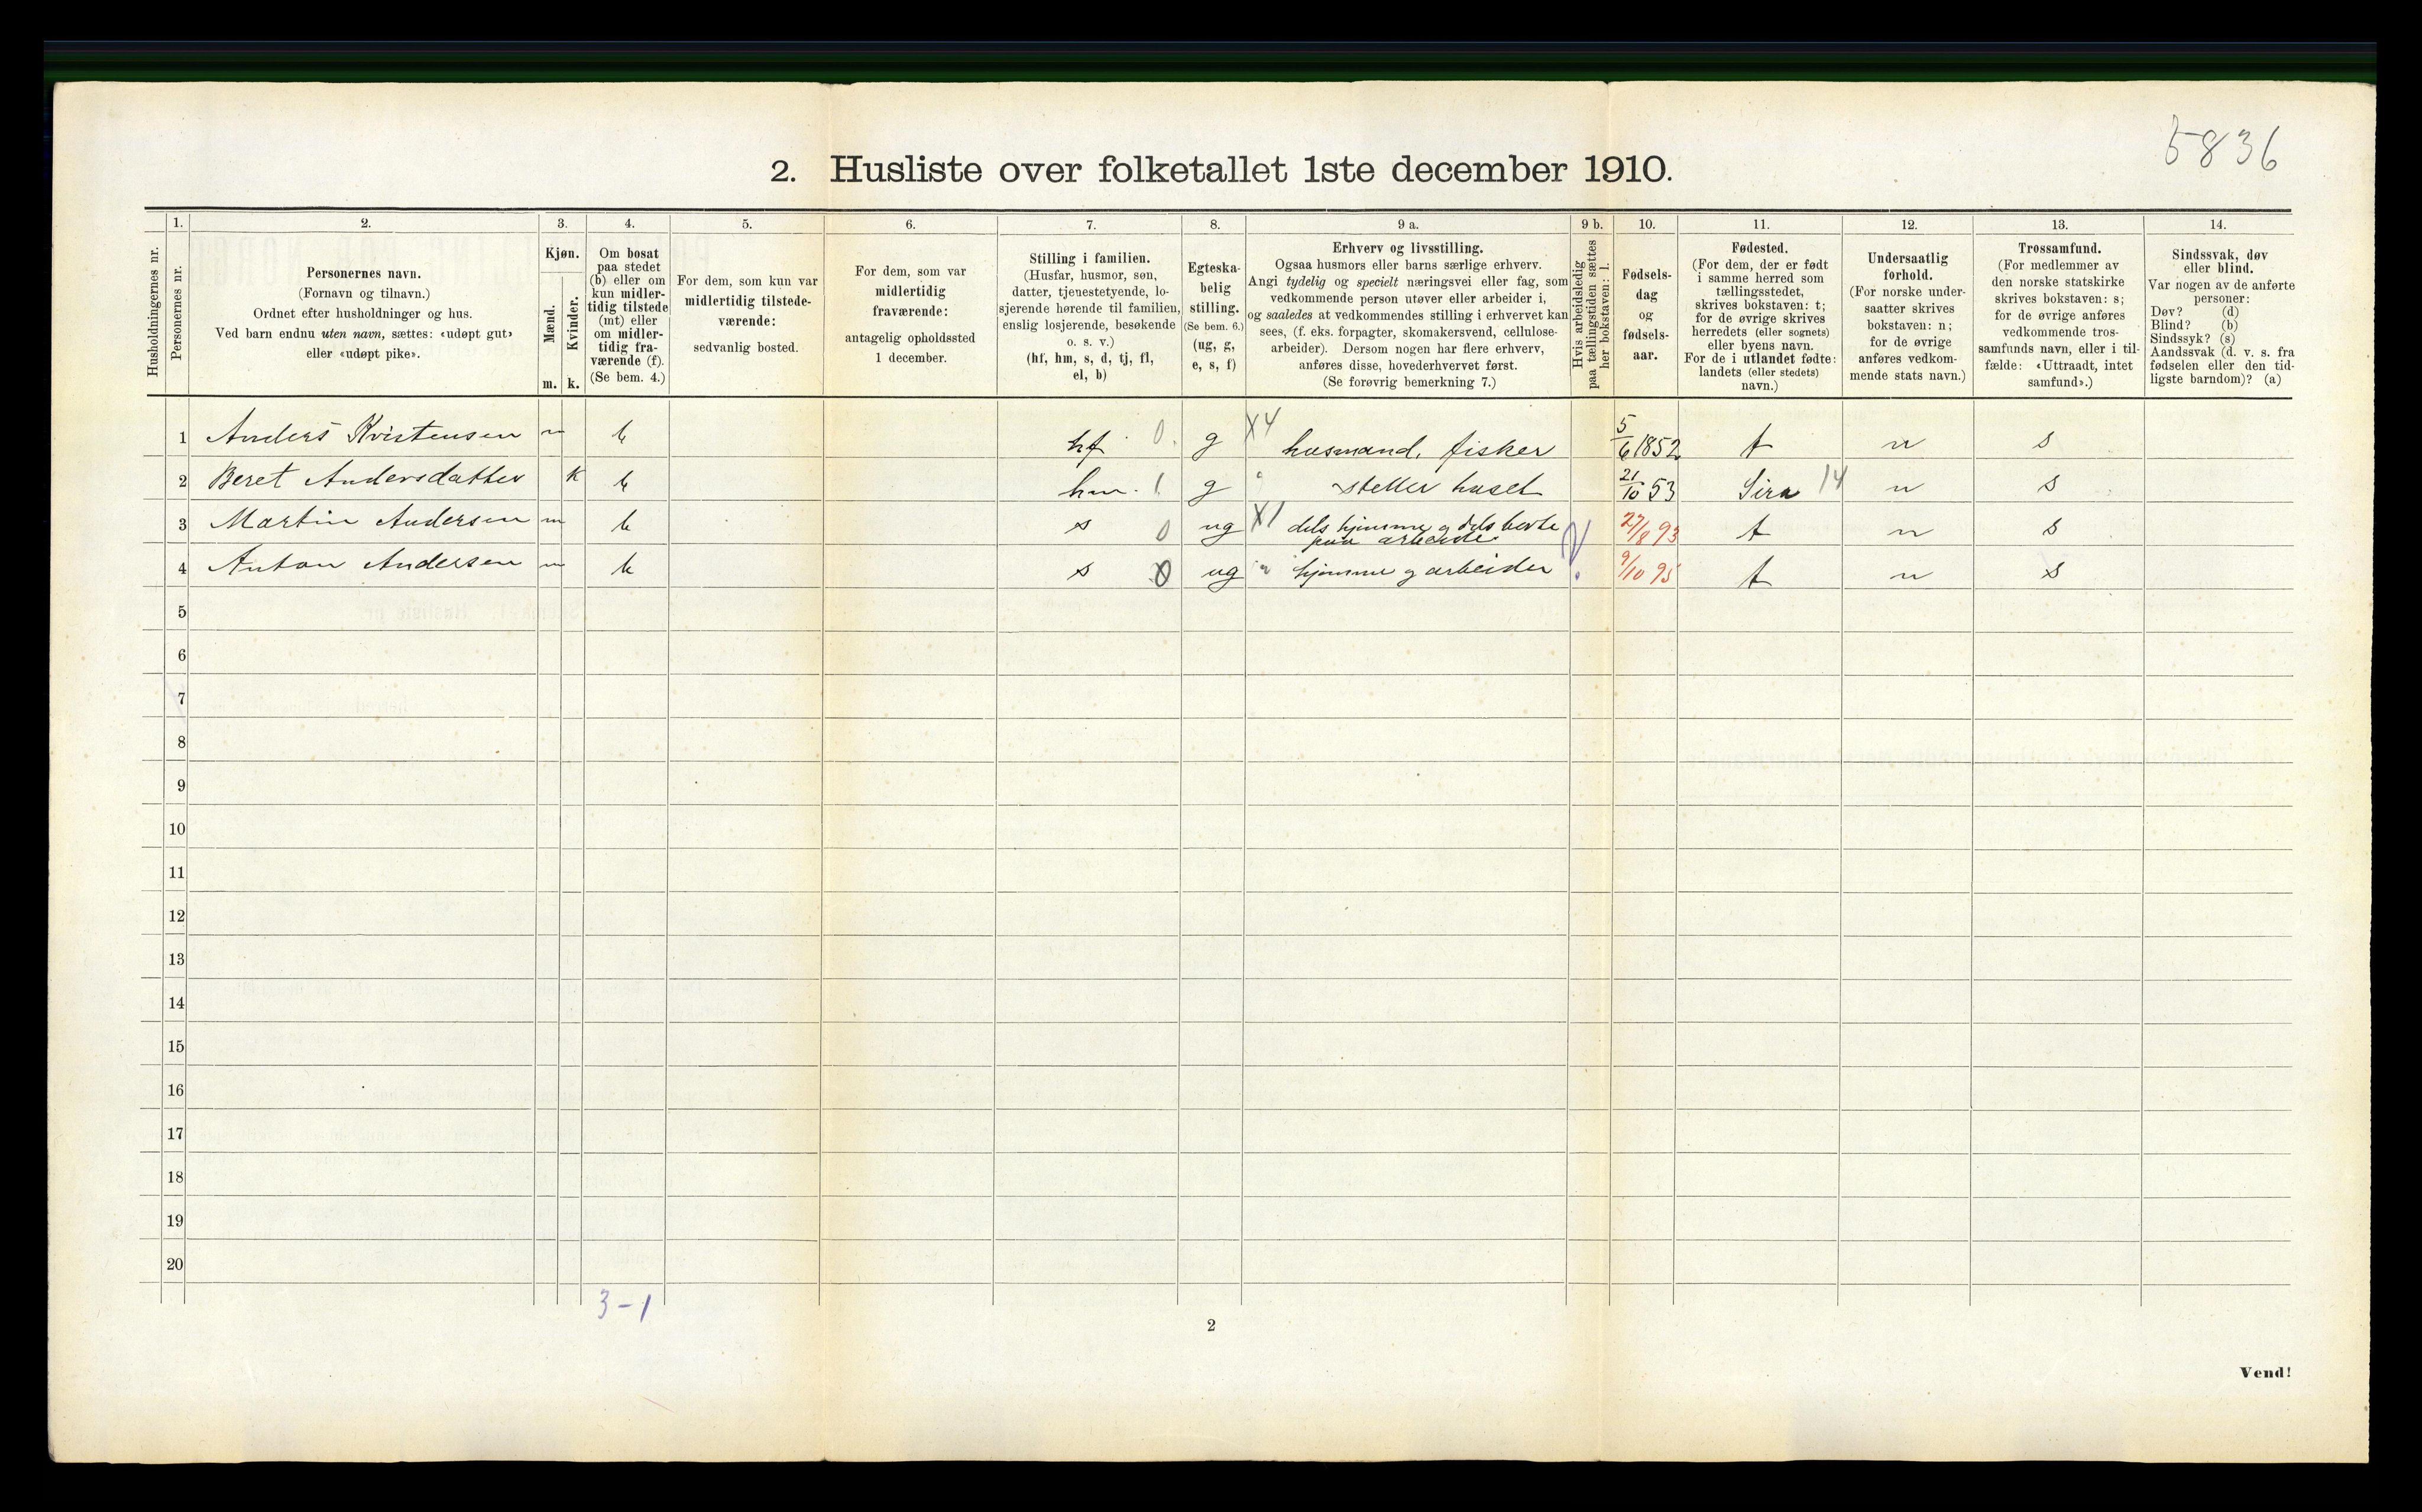 5836
2. Husliste over folketallet 1ste december 1910.
Husholdningernes nr.
1.
Personernes nr.
2.
Personernes navn.
(Fornavn og tilnavn.)
Ordnet efter husholdninger og hus.
Ved barn endnu uten navn, sættes: «udøpt gut»
eller «udøpt pike».
3.
Kjøn.
Mænd.
m.
Kvinder.
k.
4.
Om bosat
paa stedet
(b) eller om
kun midler-
tidig tilstede
(mt) eller
om midler-
tidig fra-
værende (f).
(Se bem. 4.)
5.
For dem, som kun var
midlertidig tilstede-
værende:
sedvanlig bosted.
6.
For dem, som var
midlertidig
fraværende:
antagelig opholdssted
1 december.
7.
Stilling i familien.
(Husfar, husmor, søn,
datter, tjenestetyende, lo-
sjerende hørende til familien,
enslig losjerende, besøkende
o. s. v.)
(hf, hm, s, d, tj, fl,
el, b)
8.
Egteska-
belig
stilling.
(Se bem. 6.)
(ug, g,
e, s, f)
9 a.
Erhverv og livsstilling.
Ogsaa husmors eller barns særlige erhverv.
Angi tydelig og specielt næringsvei eller fag, som
vedkommende person utøver eller arbeider i,
og saaledes at vedkommendes stilling i erhvervet kan
sees, (f. eks. forpagter, skomakersvend, cellulose-
arbeider). Dersom nogen har flere erhverv,
anføres disse, hovederhvervet først.
(Se forøvrig bemerkning 7.)
9 b.
Hvis arbeidsledig
paa tællingstiden sættes
her bokstaven: l.
10.
Fødsels-
dag
og
fødsels-
aar.
11.
Fødested.
(For dem, der er født
i samme herred som
tællingsstedet,
skrives bokstaven: t;
for de øvrige skrives
herredets (eller sognets)
eller byens navn.
For de i utlandet fødte:
landets (eller stedets)
navn.)
12.
Undersaatlig
forhold.
(For norske under-
saatter skrives
bokstaven: n;
for de øvrige
anføres vedkom-
mende stats navn.)
13.
Trossamfund.
(For medlemmer av
den norske statskirke
skrives bokstaven: s;
for de øvrige anføres
vedkommende tros-
samfunds navn, eller i til-
fælde: «Uttraadt, intet
samfund».)
14.
Sindssvak, døv
eller blind.
Var nogen av de anførte
personer:
Døv? (d)
Blind? (b)
Sindssyk? (s)
Aandssvak (d. v. s. fra
fødselen eller den tid-
ligste barndom)? (a)
1 Anders Kristensen m b hf 0. g X4 husmand, fisker 5/6 1852 t n s
2 Beret Andersdatter K b hm. 1. g " steller huset 21/10 53 Sira 14 n s
3 Martin Andersen m b s 0 ug X1 dels hjemme og dels borte
paa arbeide 27/8 93 t n s
4 Anton Andersen m b s 0 ug " hjemme og arbeider ? 9/10 95 t n s
5
6
7
8
9
10
11
12
13
14
15
16
17
18
19
20
3-1
2
Vend!